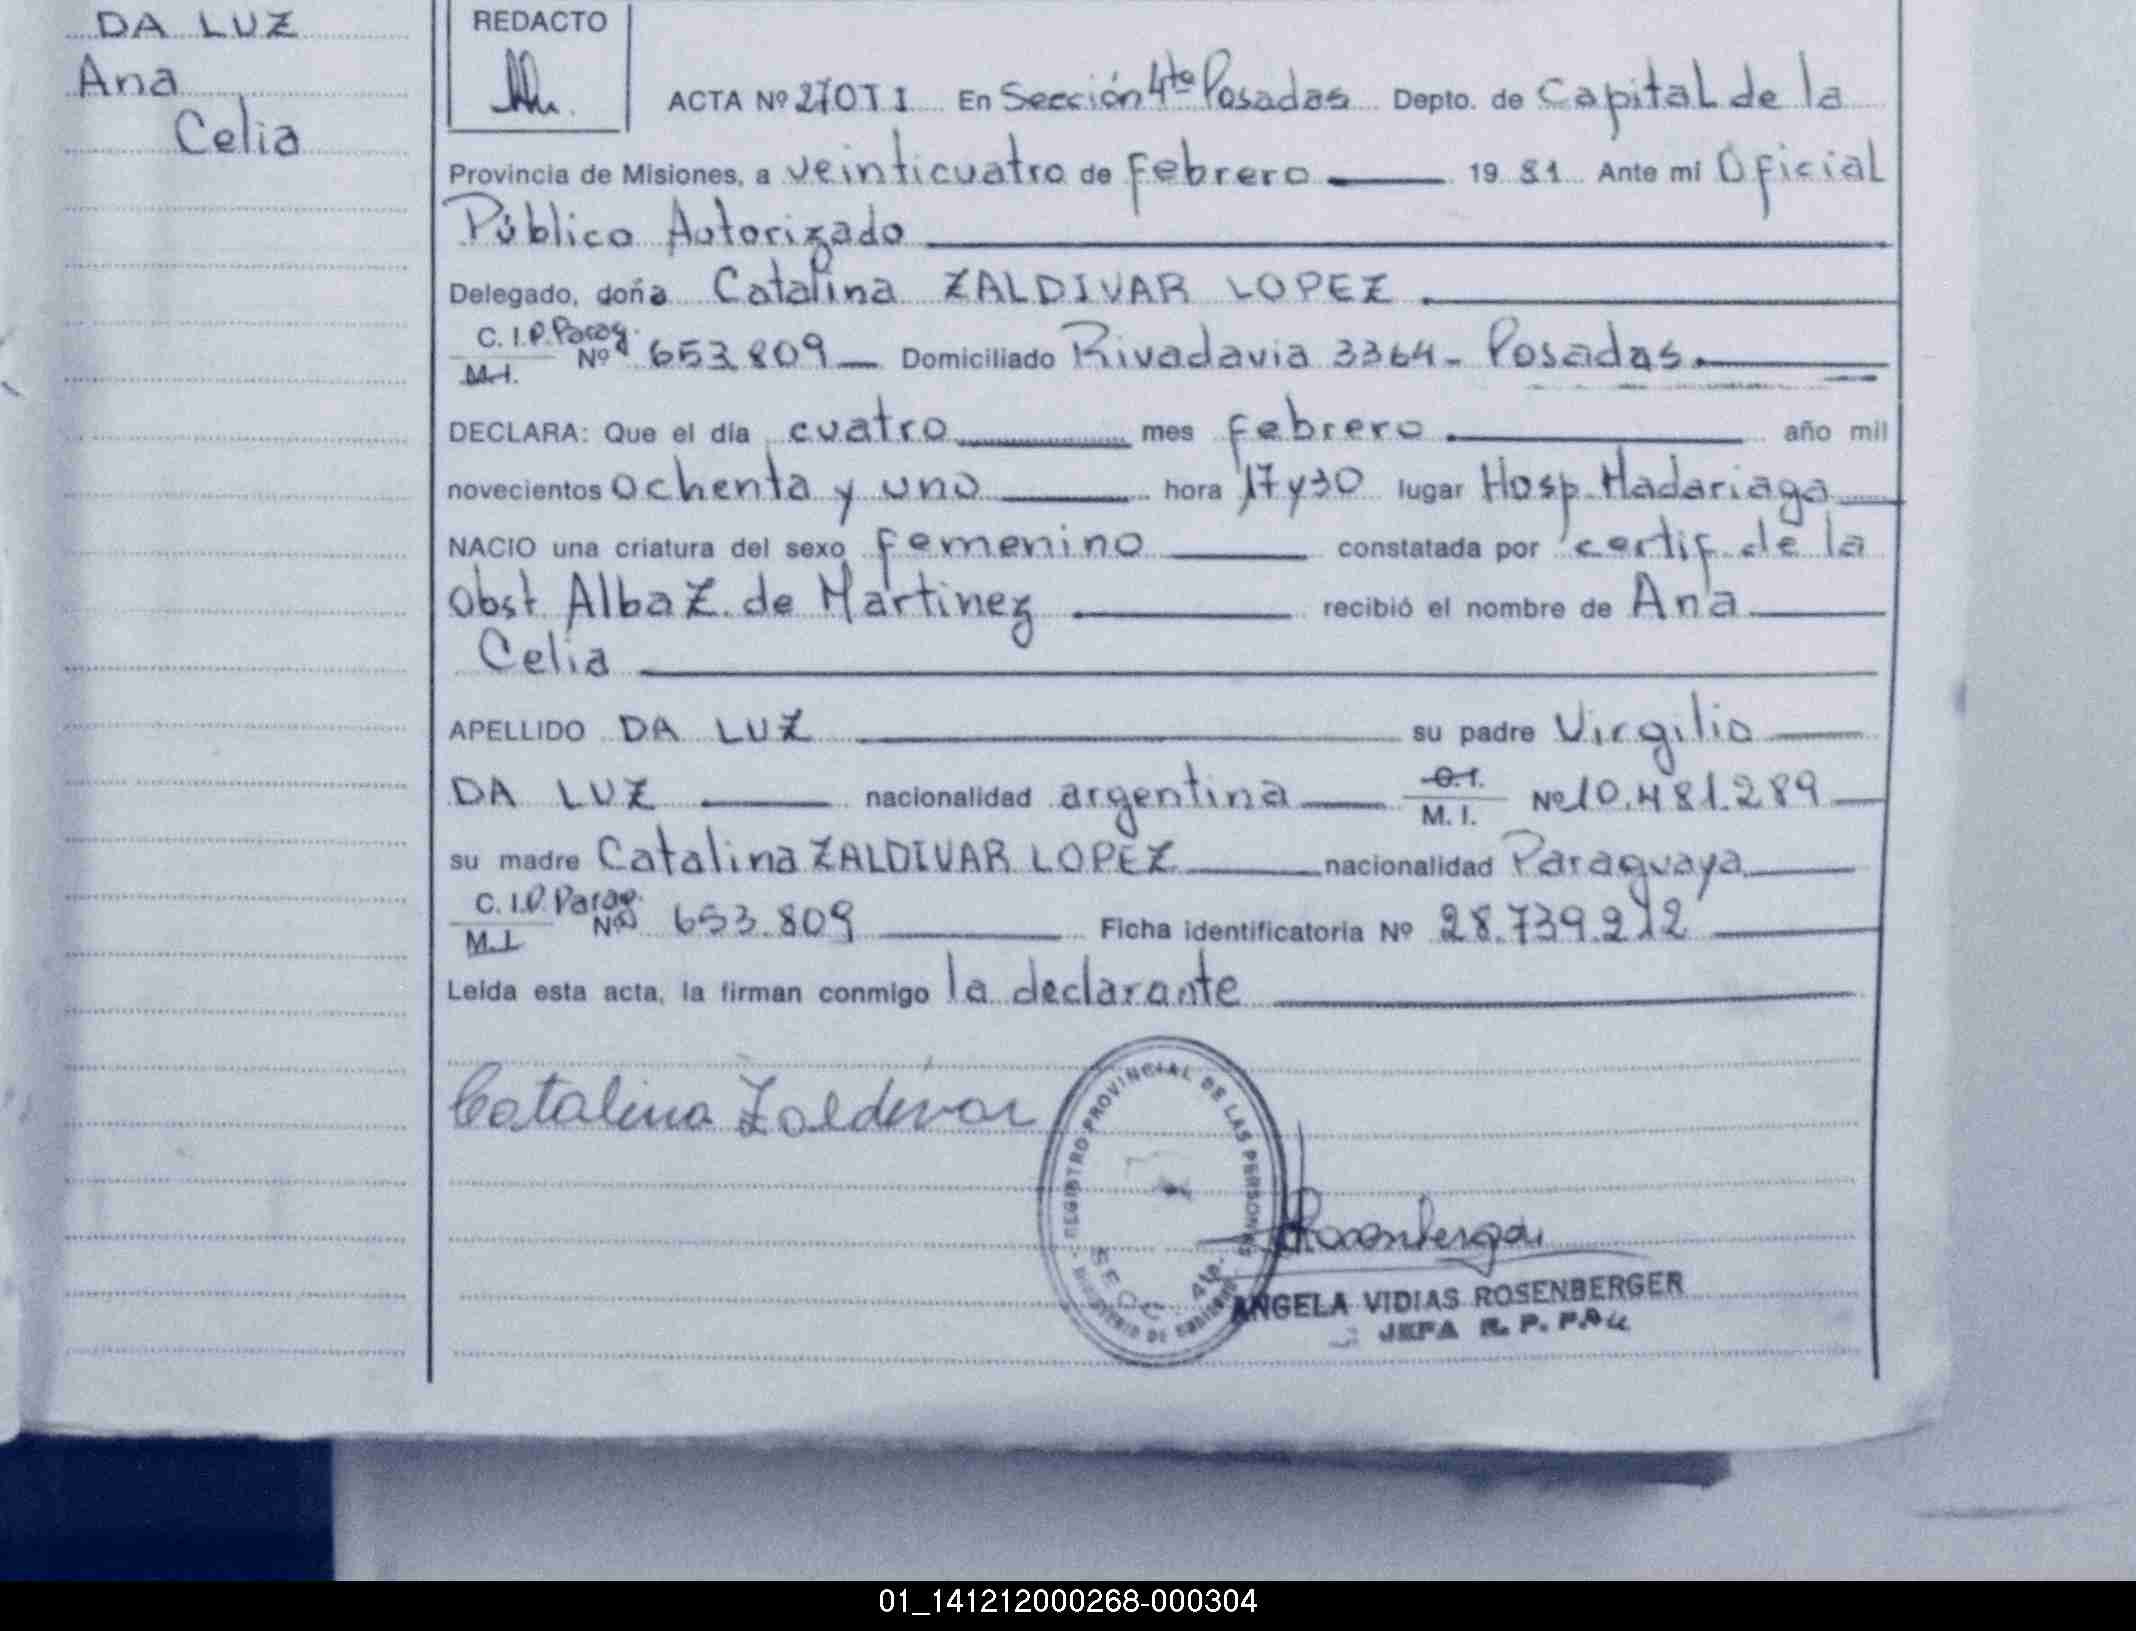 DA LUZ
Ana
Celia
REDACTO
ACTA Nº 270 T I En Sección 4ta Posadas Depto. de Capital de la
Provincia de Misiones, a veinticuatro de febrero 19 81 Ante mí Oficial
Público Autorizado
Delegado, doña Catalina ZALDIVAR LOPEZ
C. I. P. Parag.
M.I. Nº 653.809 Domiciliado Rivadavia 3364 - Posadas.
DECLARA: Que el día cuatro mes febrero año mil
novecientos ochenta y uno hora 17 y 30 lugar Hosp. Madariaga
NACIO una criatura del sexo femenino constatada por certif. de la
Obst Alba Z. de Martinez recibió el nombre de Ana
Celia
APELLIDO DA LUZ su padre Virgilio
DA LUZ nacionalidad argentina M. I. Nº 10.481.289
su madre Catalina ZALDIVAR LOPEZ nacionalidad Paraguaya
C. I. P. Parag.
M.I. Nº 653.809 Ficha identificatoria Nº 28.739.212
Leída esta acta, la firman conmigo la declarante
Catalina Zaldivar
REGISTRO PROVINCIAL DE LAS PERSONAS
SECC. 4ta.
ANGELA VIDIAS ROSENBERGER
JEFA R. P. P.
01_141212000268-000304